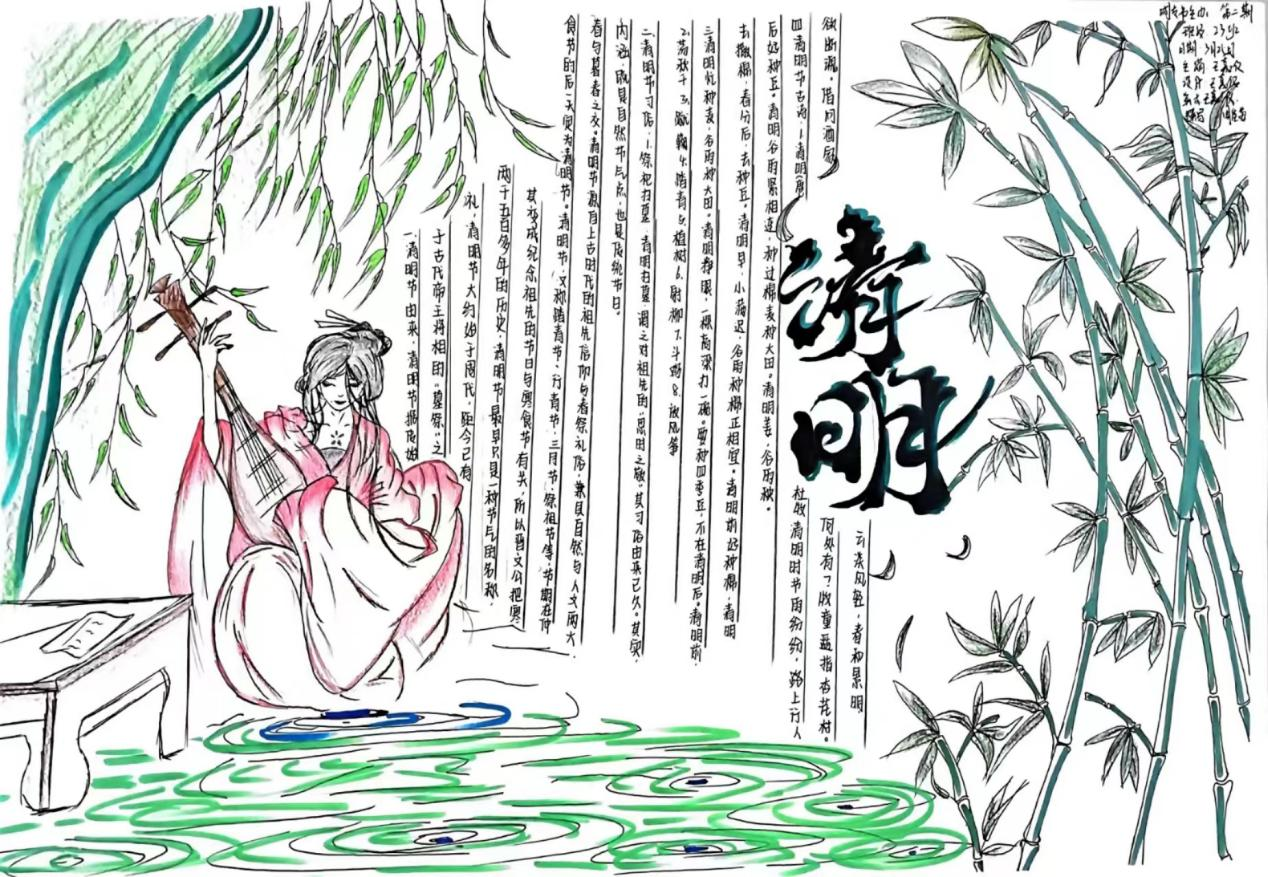 清明
一.清明节由来,清明节据传始
于古代帝王将相的“墓祭”之
礼,清明节大约始于周代,距今已有
两千五百多年的历史,清明节最早只是一种节气的名称,
其变成纪念祖先的节日与寒食节有关,所以晋文公把寒
食节的后一天定为清明节。清明节,又称踏青节、行青节、三月节、祭祖节等,节期在仲
春与暮春之交。清明节源自上古时代的祖先信仰与春祭礼俗,兼具自然与人文两大
内涵,既是自然节气点,也是传统节日。
二.清明节习俗.1.祭祀扫墓 清明扫墓,谓之对祖先的“思时之敬”其习俗由来已久。其实,
2.荡秋千 3.蹴鞠 4.踏青 5.植树 6.射柳 7.斗鸡 8.放风筝
三.清明忙种麦,谷雨种大田。清明挣眼,一棵高粱打一碗。要种四季豆,不在清明后。清明前,
去撒棉,春分后,去种豆。清明早,小满迟,谷雨种棉正相宜。清明前好种棉,清明
后好种豆。清明谷雨紧相连,柳过棉麦种大田。清明姜,谷雨秧。
四.清明节古诗.1.清明(唐)
杜牧 清明时节雨纷纷,路上行人
欲断魂,借问酒家
何处有?牧童遥指杏花村。
云淡风轻,春和景明
第二期
班级 2312